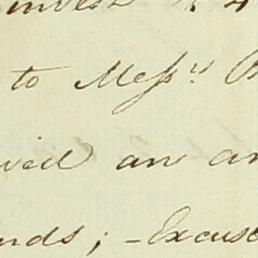 to Messrs
ived an an
nds; - Excuse